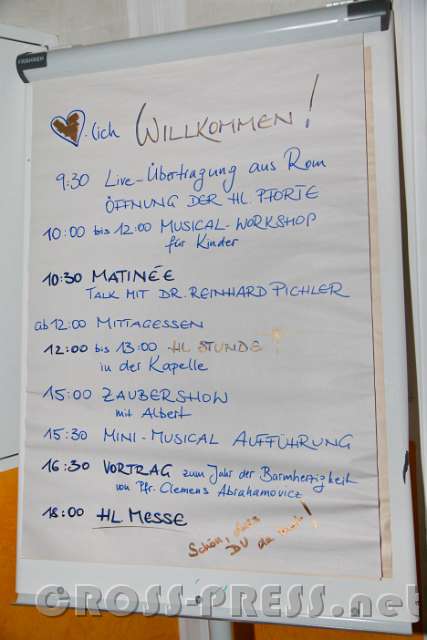 FRANKEN
lich WILLKOMMEN!
9:30 Live-Übertragung aus Rom
ÖFFNUNG DER HL. PFORTE
10:00 bis 12:00 MUSICAL-WORKSHOP
für Kinder
10:30 MATINÉE
TALK MIT DR. REINHARD PICHLER
ab 12:00 MITTAGESSEN
12:00 bis 13:00 HL STUNDE
in der Kapelle
15:00 ZAUBERSHOW
mit Albert
15:30 MINI-MUSICAL AUFFÜHRUNG
16:30 VORTRAG zum Jahr der Barmherzigkeit
von Pfr. Clemens Abrahamovicz
18:00 HL MESSE
Schön, dass
DU da bist!
GROSS-PRESS.net